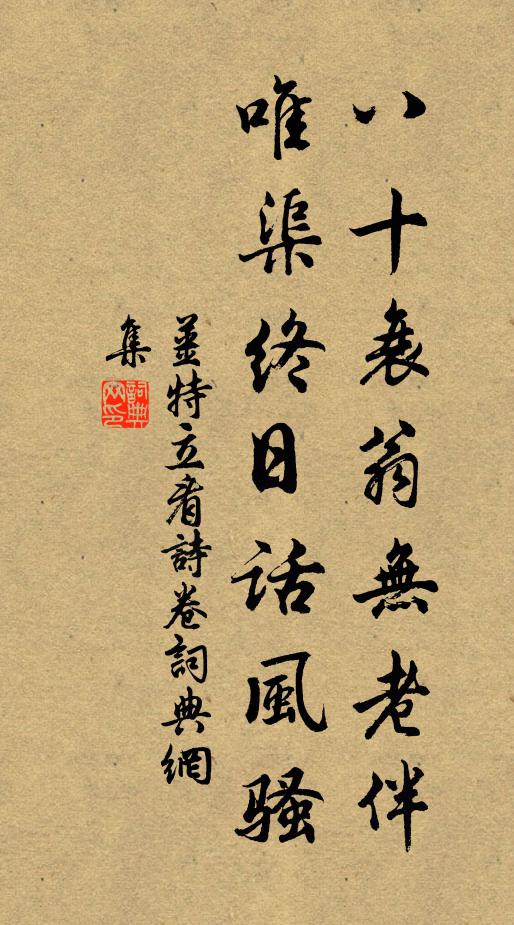 八十衰翁無老伴
唯渠終日話風騷
姜特立看詩卷詞典網
集
詞典網印